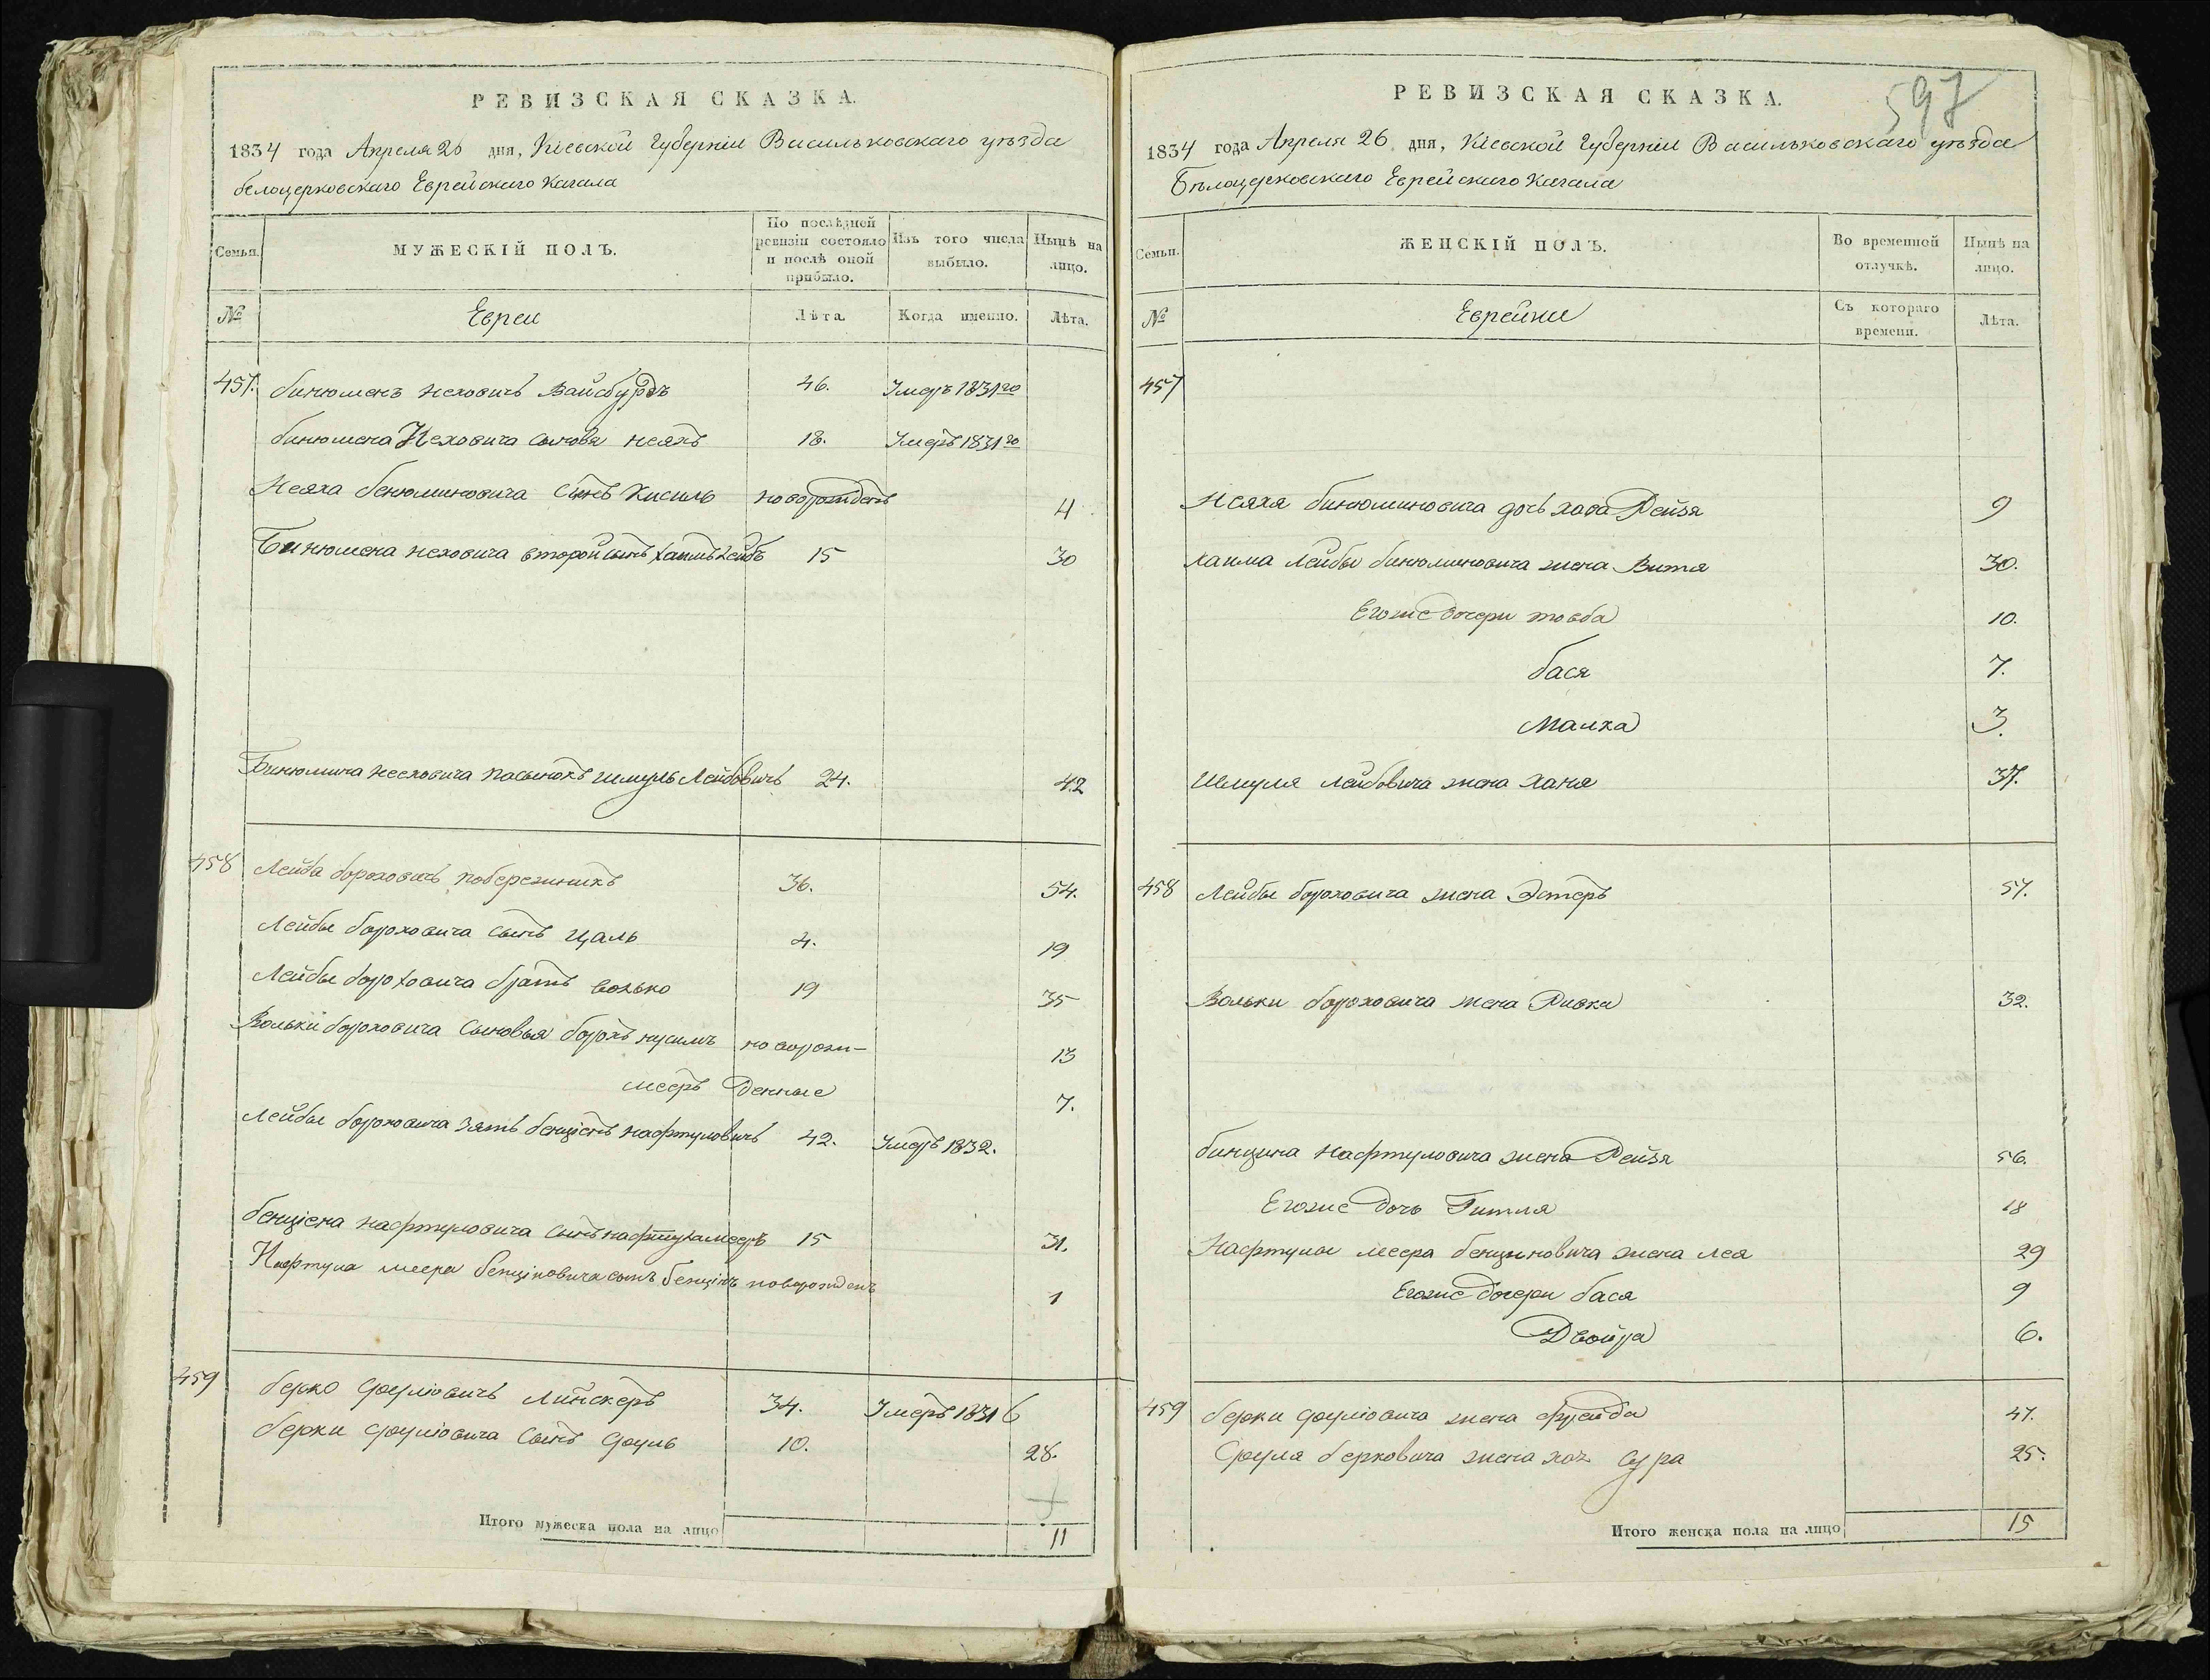 РЕВИЗСКАЯ СКАЗКА.
1834 года Апреля 26 дня, Кіевской Губерніи Васильковскаго уѣзда
белоцерковскаго Еврейскаго Кагала
Семьи.
МУЖЕСКІЙ ПОЛЪ.
По послѣдней ревизіи состояло и послѣ оной прибыло.
Изъ того числа выбыло.
Нынѣ на лицо.
№
Евреи
Лѣта.
Когда именно.
Лѣта.
457. бинюменъ неховичъ Вайсбурдъ 46. Умеръ 1831го
бинюмена Неховича сыновя неяхъ 18. Умеръ 1831го
Неяха бенюминовича сынъ Кисиль новорожденъ 4
Бинюмена неховича второй сынъ хаимъ Лейбъ 15 30
Бинюмина неховича пасынокъ шмуль Лейбовичъ 24. 42
458 Лейба бороховичъ побережникъ 36. 54.
Лейбы бороховича сынъ Цаль 4. 19
Лейбы бороховича братъ волько 19 35
Вольки бороховича сыновья борохъ нусимъ новорож- 13
мееръ денные 7.
Лейбы бороховича зять бенціенъ нафтуловичъ 42. Умеръ 1832.
бенціена нафтуловича сынъ нафтула мееръ 15 31.
Нафтула меера бенціновича сынъ бенцінъ новорожденъ 1
459 берко сруліовичъ Линскеръ 34. Умеръ 1831 6
берки сруліовича сынъ сруль 10. 28.
Итого мужеска пола на лицо 11
597
РЕВИЗСКАЯ СКАЗКА.
1834 года Апреля 26 дня, Кіевской Губерніи Васильковскаго уѣзда
Бѣлоцерковскаго Еврейскаго Кагала
Семьи.
ЖЕНСКІЙ ПОЛЪ.
Во временной отлучкѣ.
Нынѣ на лицо.
№
Еврейки
Съ котораго времени.
Лѣта.
457
Неяха бинюминовича дочь хава Рейзя 9
хаима Лейбы бинюминовича жена Витя 30.
Егоже дочери товба 10.
бася 7.
Малка 3.
Шмуля Лейбовича жена Ханя 37.
458 Лейбы бороховича жена Эстеръ 57.
Вольки бороховича жена Ривка 32.
бинцина Нафтуловича жена Рейзя 56.
Егоже дочь Гитля 18
Нафтулы меера бенциновича жена лея 29
Егоже дочери бася 9
Двойра 6.
459 берки сруліовича жена фрейда 47.
Сруля берковича жена хая сура 25.
Итого женска пола на лицо 15